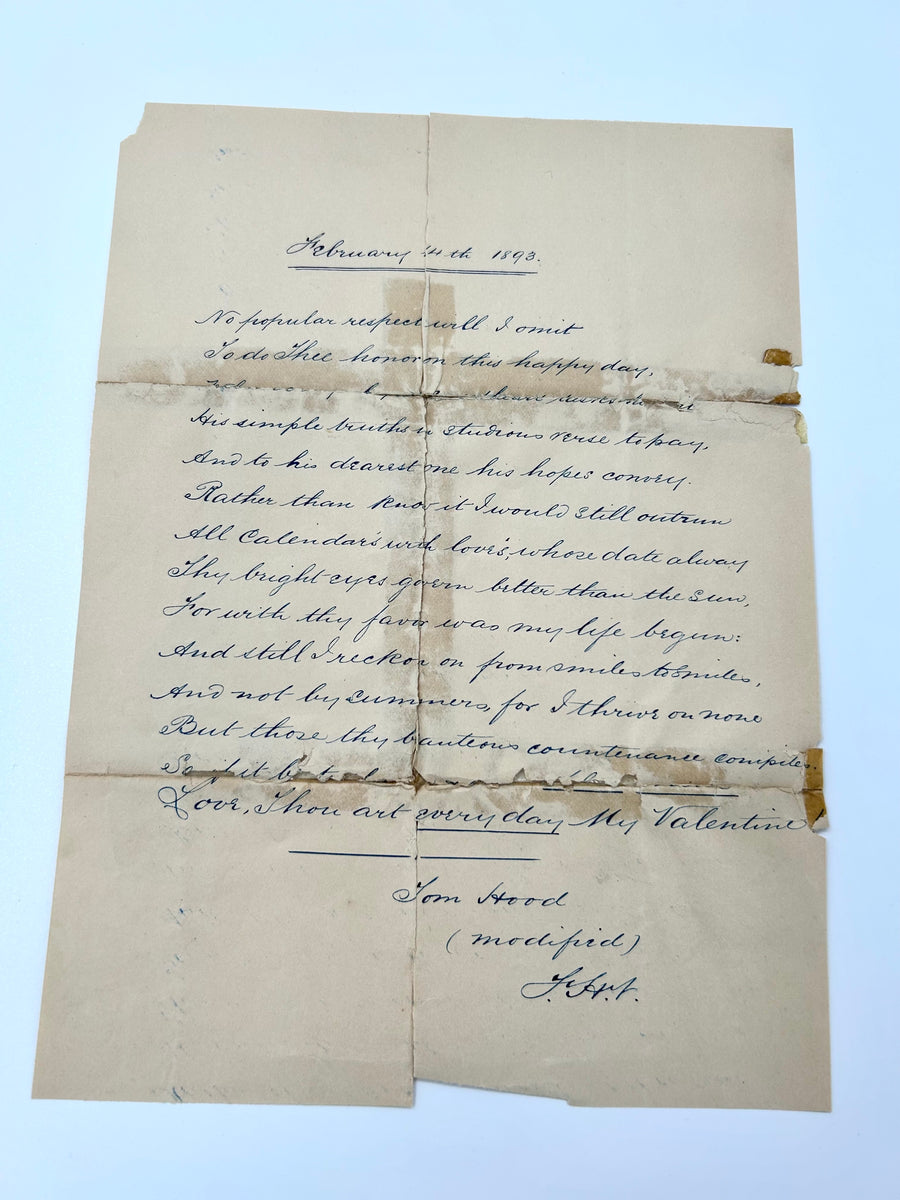 February 14th 1893.
No popular respect will I omit
To do Thee honor on this happy day,
His simple truths in studious verse to pay,
And to his dearest me his hopes convey.
Rather than know it I would still outrun
All Calendars with love's, whose date alway
Thy bright eyes govern better than the Sun,
For with thy favor was my life begun:
And still I reckon on from smiles to smiles,
And not by Summers, for I thrive on none
But those thy bauteous countenance compiles.
Love, Thou art every day My Valentine
Tom Hood
(modified)